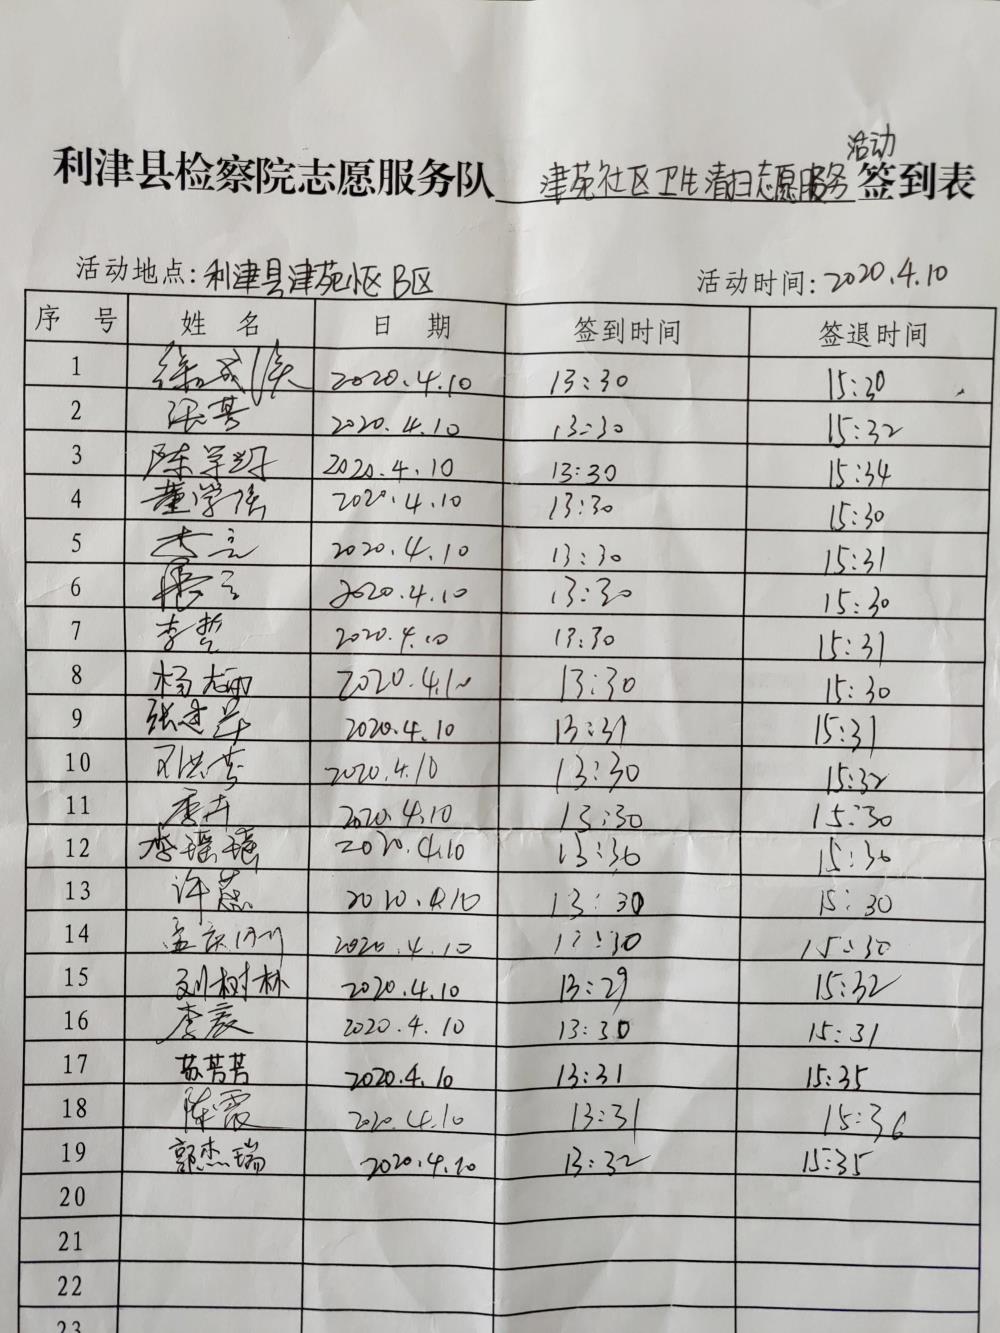 利津县检察院志愿服务队 津苑社区卫生清扫志愿服务活动 签到表
活动地点:利津县津苑小区B区 活动时间:2020.4.10
序 号 姓 名 日 期 签到时间 签退时间
1 2020.4.10 13:30 15:20
2 2020.4.10 13:30 15:32
3 陈学 2020.4.10 13:30 15:34
4 董学 2020.4.10 13:30 15:30
5 2020.4.10 13:30 15:31
6 2020.4.10 13:30 15:30
7 李哲 2020.4.10 13:30 15:31
8 杨 2020.4.10 13:30 15:30
9 张 2020.4.10 13:31 15:31
10 2020.4.10 13:30 15:32
11 2020.4.10 13:30 15:30
12 李瑶瑶 2020.4.10 13:30 15:30
13 许蕊 2020.4.10 13:30 15:30
14 孟庆 2020.4.10 13:30 15:30
15 刘树林 2020.4.10 13:29 15:32
16 李霞 2020.4.10 13:30 15:31
17 苏芳芳 2020.4.10 13:31 15:35
18 陈霞 2020.4.10 13:31 15:36
19 郭杰瑞 2020.4.10 13:32 15:35
20
21
22
23